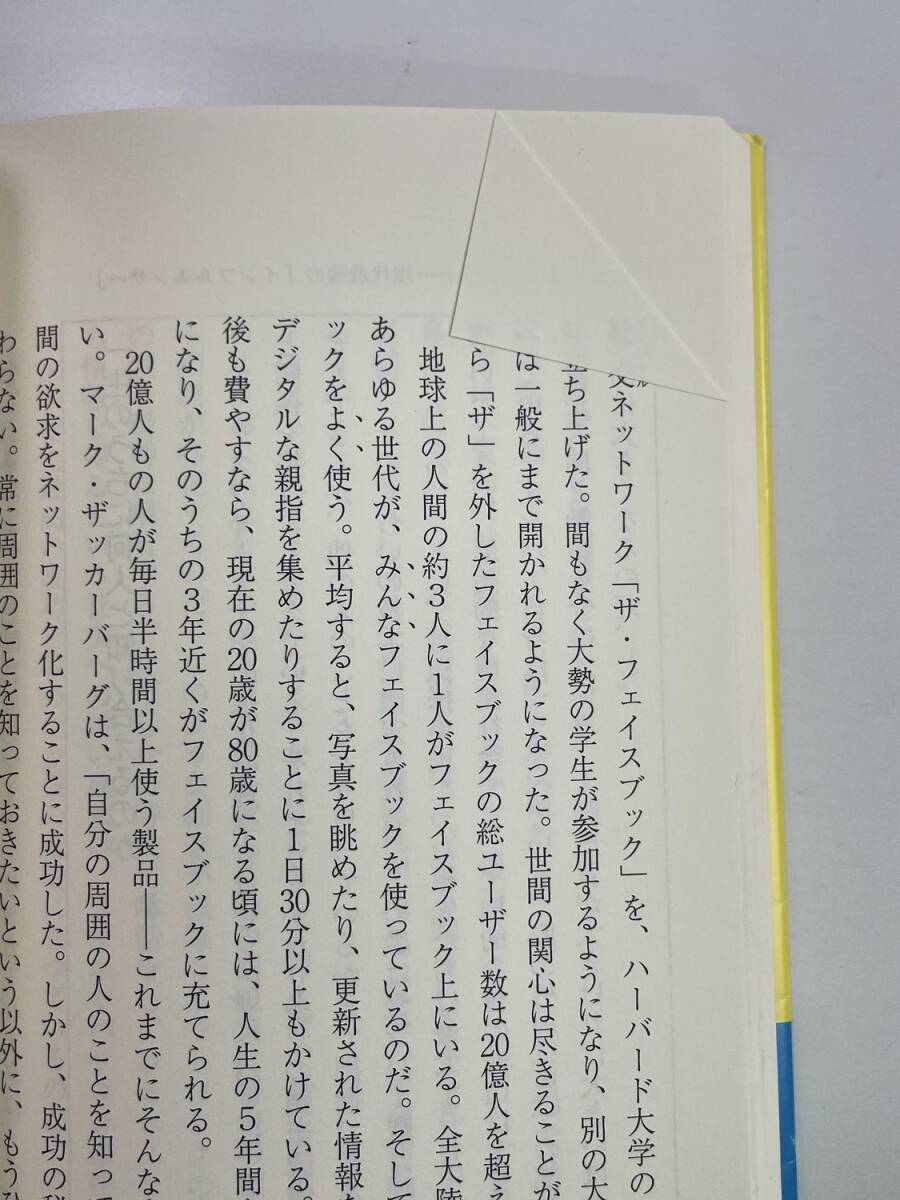 交ネットワーク「ザ・フェイスブック」を、ハーバード大学の
立ち上げた。間もなく大勢の学生が参加するようになり、別の大
は一般にまで開かれるようになった。世間の関心は尽きることが
ら「ザ」を外したフェイスブックの総ユーザー数は20億人を超え
地球上の人間の約3人に1人がフェイスブック上にいる。全大陸
あらゆる世代が、みんなフェイスブックを使っているのだ。そして
ックをよく使う。平均すると、写真を眺めたり、更新された情報を
デジタルな親指を集めたりすることに1日30分以上もかけている。
後も費やすなら、現在の20歳が80歳になる頃には、人生の5年間
になり、そのうちの3年近くがフェイスブックに充てられる。
20億人もの人が毎日半時間以上使う製品——これまでにそんな
い。マーク・ザッカーバーグは、「自分の周囲の人のことを知って
間の欲求をネットワーク化することに成功した。しかし、成功の
わらない。常に周囲のことを知っておきたいという以外に、もう